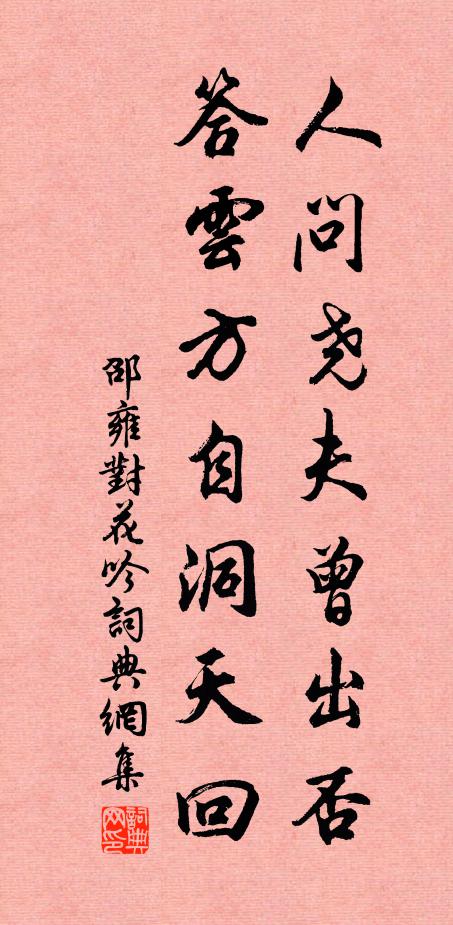 人问尧夫曾出否
答雲方自洞天回
邵雍對花吟詞典網集
詞典网印